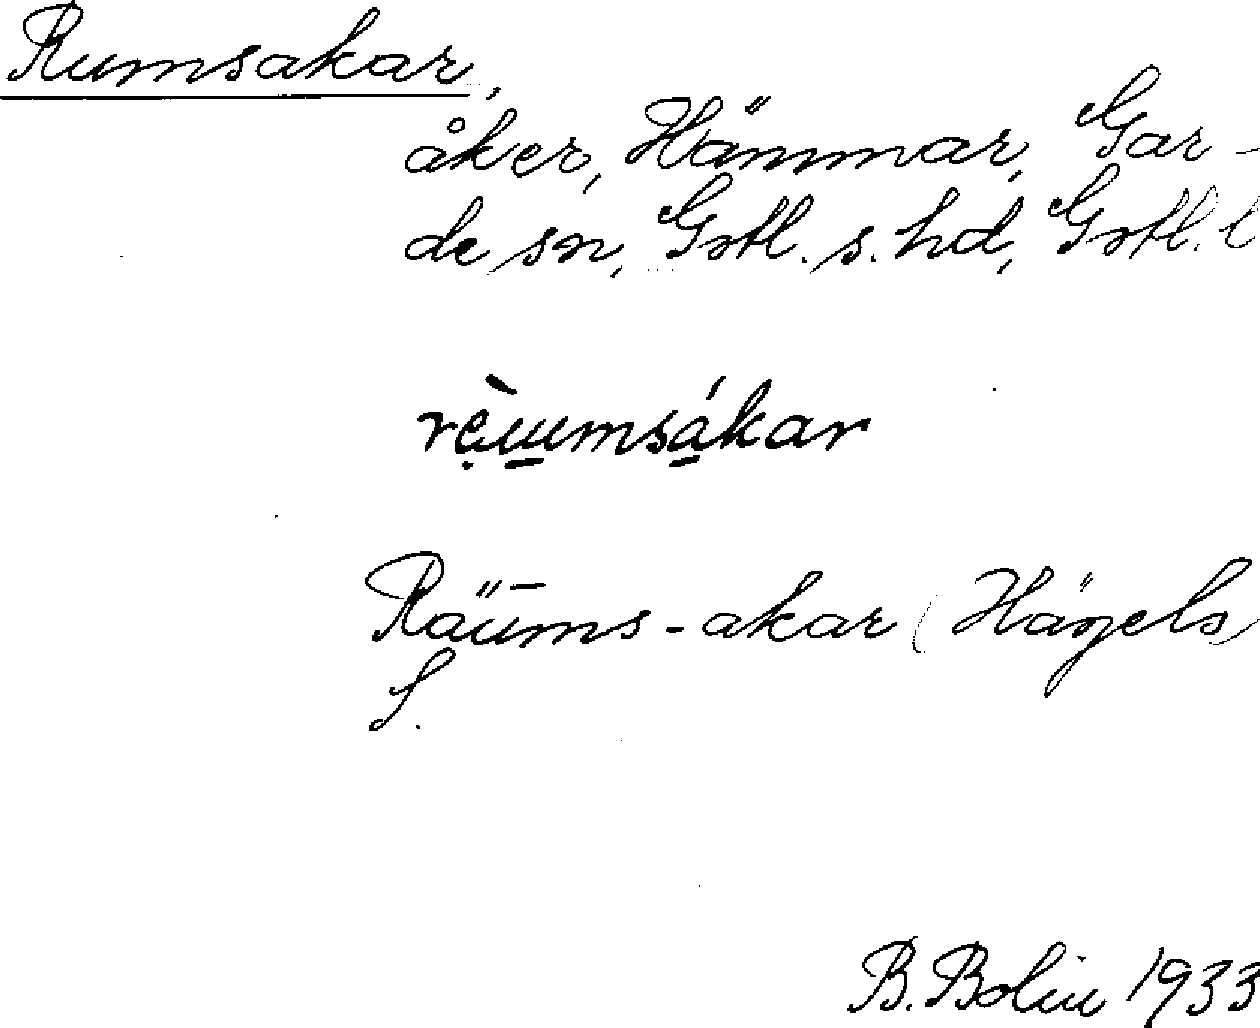 Rumsakar,
åker, Hämmar, Gar-
de sn, Gotl. s. hd, Gotl. l
rèu̱umsá̱kar
Räūms-akar (Hägels)
S.
B. Bolin 1933